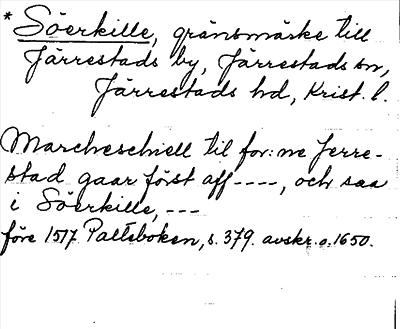 * Söerkille, gränsmärke till
Järrestads by, Järrestads sn,
Järrestads hd, Krist. l.
Marcheschiell til for:ne Jerre-
stad gaar först aff ----, och saa
i Söerkille, ---
före 1517 Paltsboken, s. 379. avskr. o. 1650.